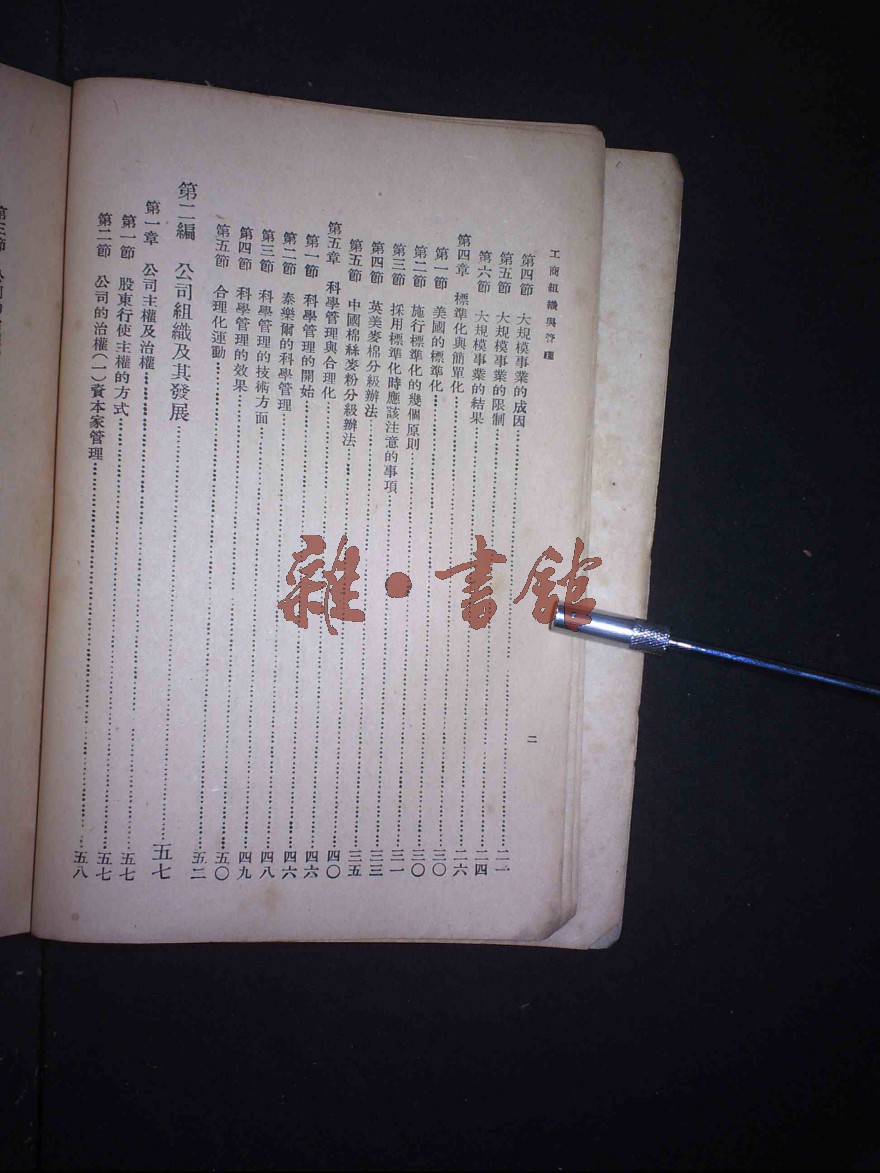 工商組織與管理
第四節 大規模事業的成因……二二
第五節 大規模事業的限制……二四
第六節 大規模事業的結果……二六
第四章 標準化與簡單化……三〇
第一節 美國的標準化……三〇
第二節 施行標準化的幾個原則……三一
第三節 採用標準化時應該注意的事項……三三
第四節 英美麥棉分級辦法……三五
第五節 中國棉絲麥粉分級辦法……四〇
第五章 科學管理與合理化……四六
第一節 科學管理的開始……四六
第二節 泰樂爾的科學管理……四八
第三節 科學管理的技術方面……四九
第四節 科學管理的效果……五〇
第五節 合理化運動……五二
第二編 公司組織及其發展……五七
第一章 公司主權及治權……五七
第一節 股東行使主權的方式……五七
第二節 公司的治權(一)資本家管理……五八
二
雜·書館